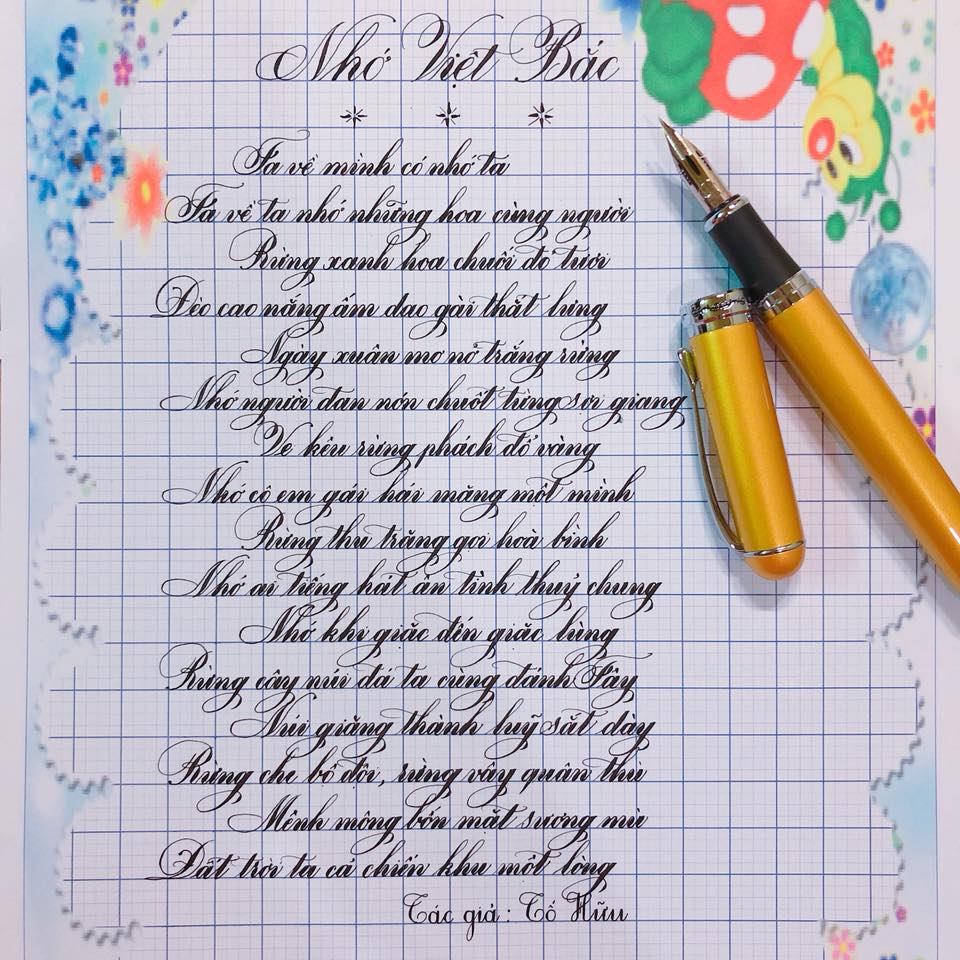 Nhớ Việt Bắc
Ta về mình có nhớ ta
Ta về ta nhớ những hoa cùng người
Rừng xanh hoa chuối đỏ tươi
Đèo cao nắng ấm dao gài thắt lưng
Ngày xuân mơ nở trắng rừng
Nhớ người đan nón chuốt từng sợi giang
Ve kêu rừng phách đổ vàng
Nhớ cô em gái hái măng một mình
Rừng thu trăng gọi hoà bình
Nhớ ai tiếng hát ân tình thuỷ chung
Nhớ khi giặc đến giặc lùng
Rừng cây núi đá ta cùng đánh Tây
Núi giăng thành luỹ sắt dày
Rừng che bộ đội, rừng vây quân thù
Mênh mông bốn mặt sương mù
Đất trời ta cả chiến khu một lòng
Tác giả : Tố Hữu